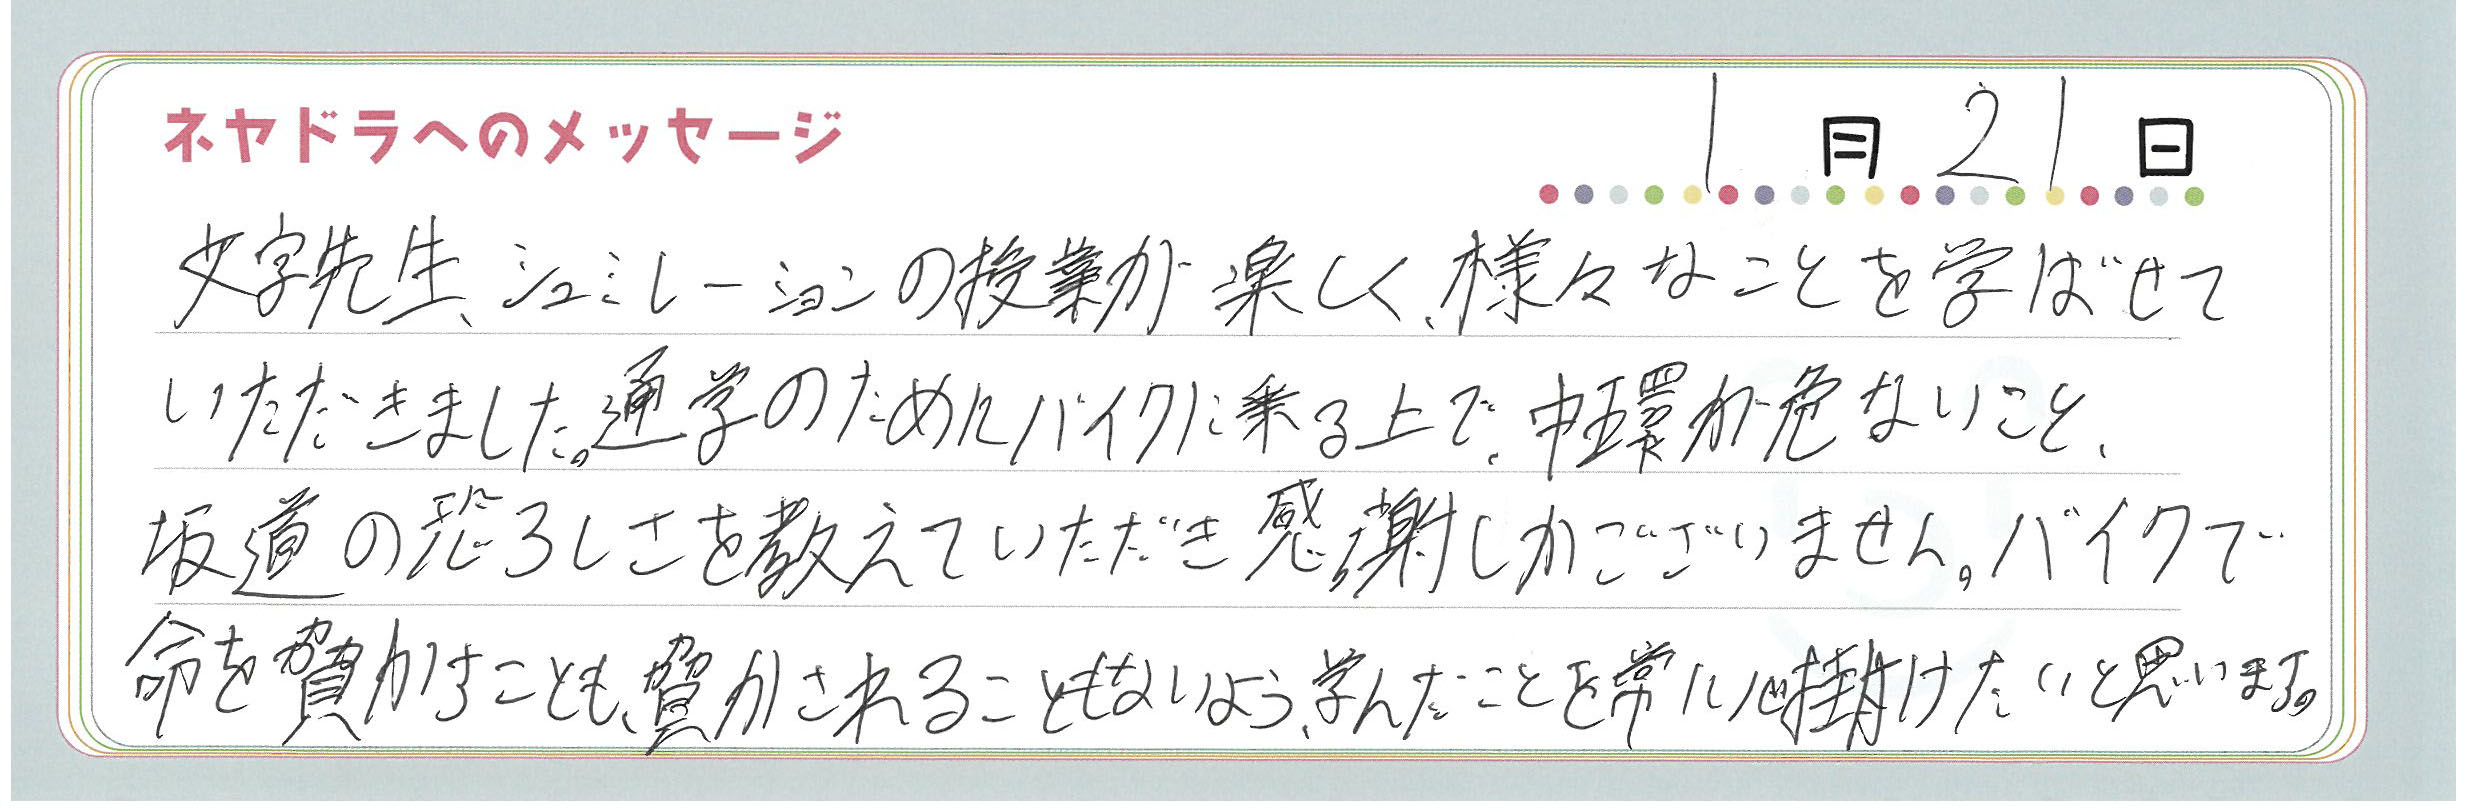 ネヤドラへのメッセージ
1月21日
文字先生、シュミレーションの授業が楽しく、様々なことを学ばせて
いただきました。通学のためにバイクに乗る上で、中環が危ないこと、
坂道の恐ろしさを教えていただき感謝しかございません。バイクで
命を賀かすことも、賀かされることもないよう、学んだことを常に心掛けたいと思います。